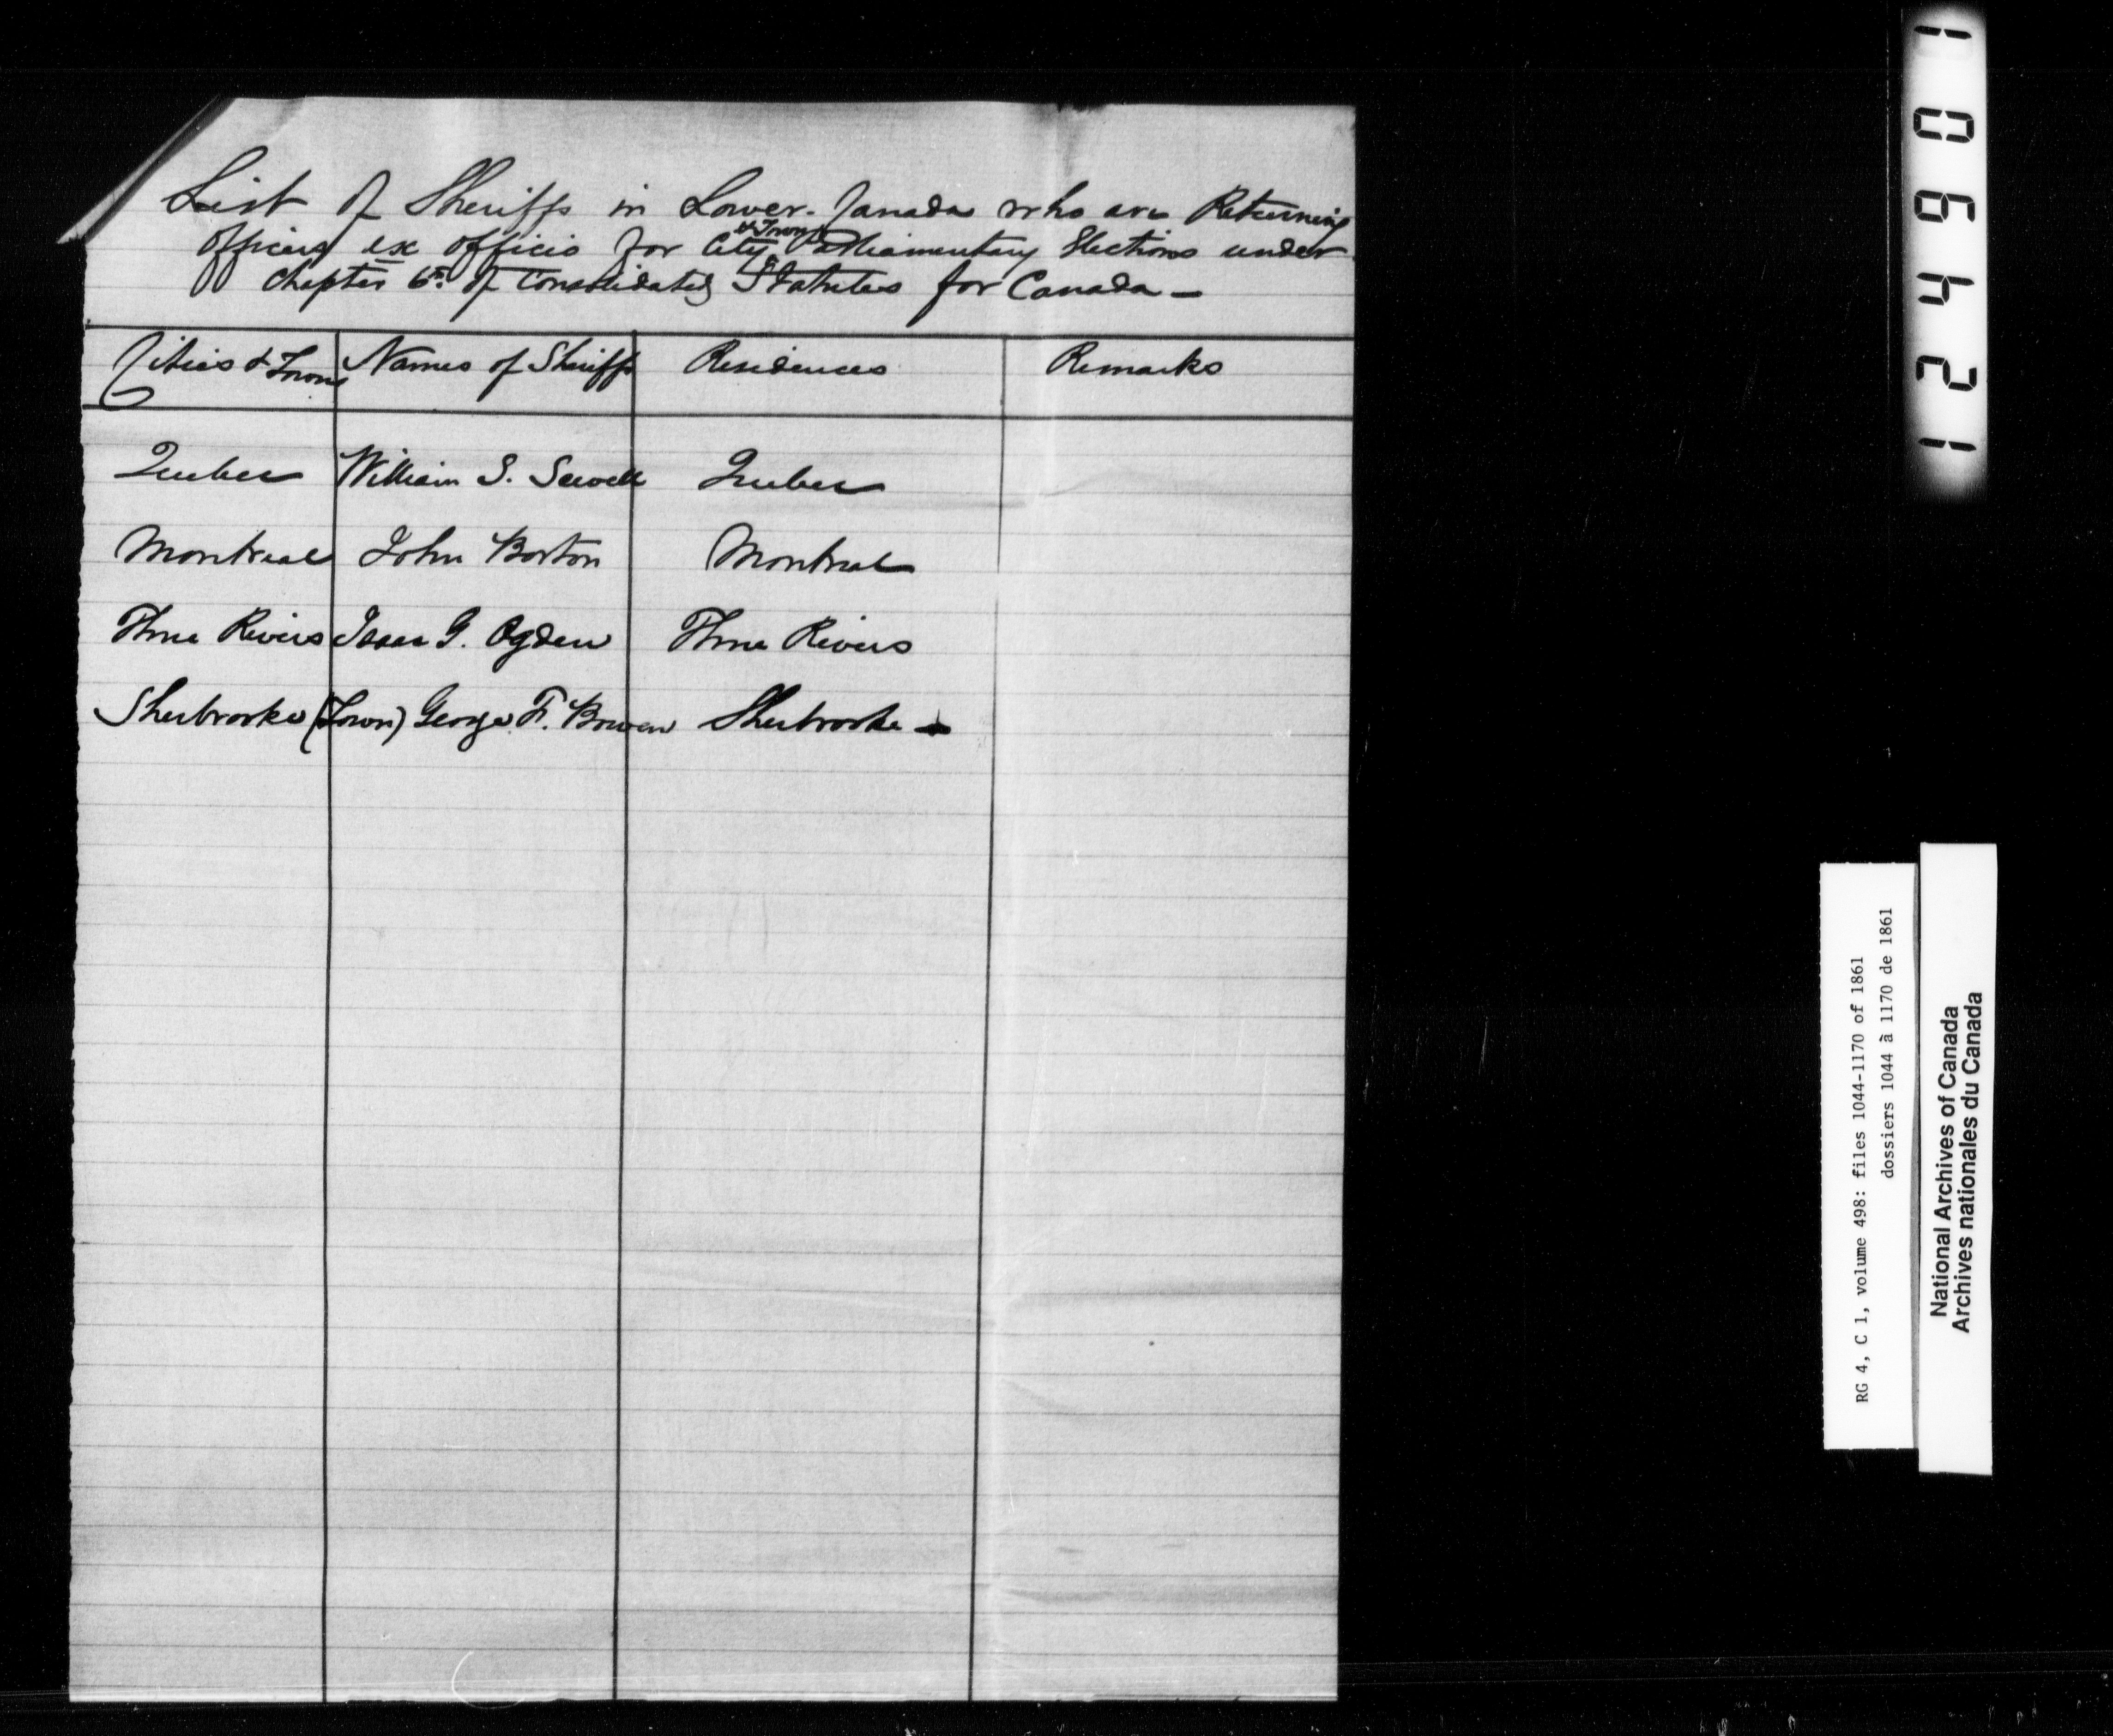 List of Sheriffs in Lower-Canada who are Returning
Officers ex officio for City & Town Parliamentary Elections under
Chapter 6th of Consolidated Statutes for Canada —
Cities & Towns Names of Sheriffs Residences Remarks
Quebec William S. Sewell Quebec
Montreal John Boston Montreal
Three Rivers Isaac G. Ogden Three Rivers
Sherbrooke (Town) George F. Bowen Sherbrooke —
124901
RG 4, C 1, volume 498: files 1044-1170 of 1861
dossiers 1044 à 1170 de 1861
National Archives of Canada
Archives nationales du Canada